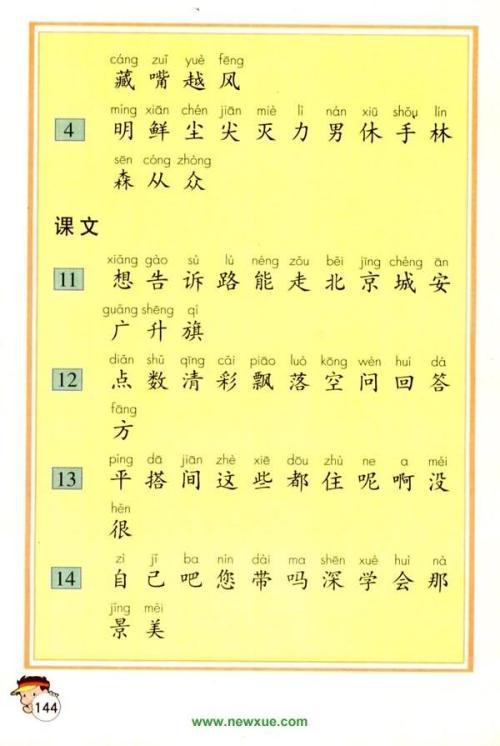 cáng zuǐ yuè fēng
藏 嘴 越 风
míng xiān chén jiān miè lì nán xiū shǒu lín
4 明 鲜 尘 尖 灭 力 男 休 手 林
sēn cóng zhòng
森 从 众
课文
xiǎng gào sù lù néng zǒu běi jīng chéng ān
11 想 告 诉 路 能 走 北 京 城 安
guǎng shēng qí
广 升 旗
diǎn shǔ qīng cǎi piāo luò kōng wèn huí dá
12 点 数 清 彩 飘 落 空 问 回 答
fāng
方
píng dā jiān zhè xiē dōu zhù ne a méi
13 平 搭 间 这 些 都 住 呢 啊 没
hěn
很
zì jǐ ba nín dài ma shēn xué huì nà
14 自 己 吧 您 带 吗 深 学 会 那
jǐng měi
景 美
144
www.newxue.com